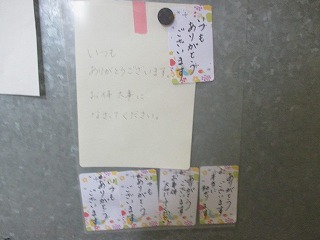 いつも
ありがとうございます。
お体大事に
なさってください。
いつも
ありがとう
ございます
いつも
ありがとう
ございます
いつも
ありがとう
ございます
ありがとう
ございます
お身体
ありがとう
ございます